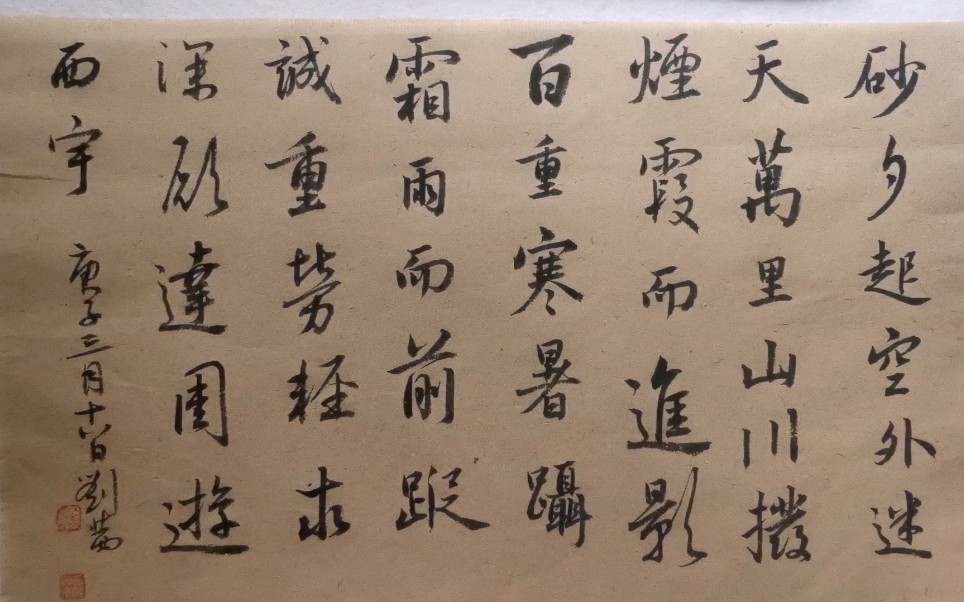 砂夕起空外迷
天萬里山川撥
煙霞而進影
百重寒暑躡
霜雨而前蹤
誠重勞輕求
深願達周遊
西宇 庚子三月十六日劉